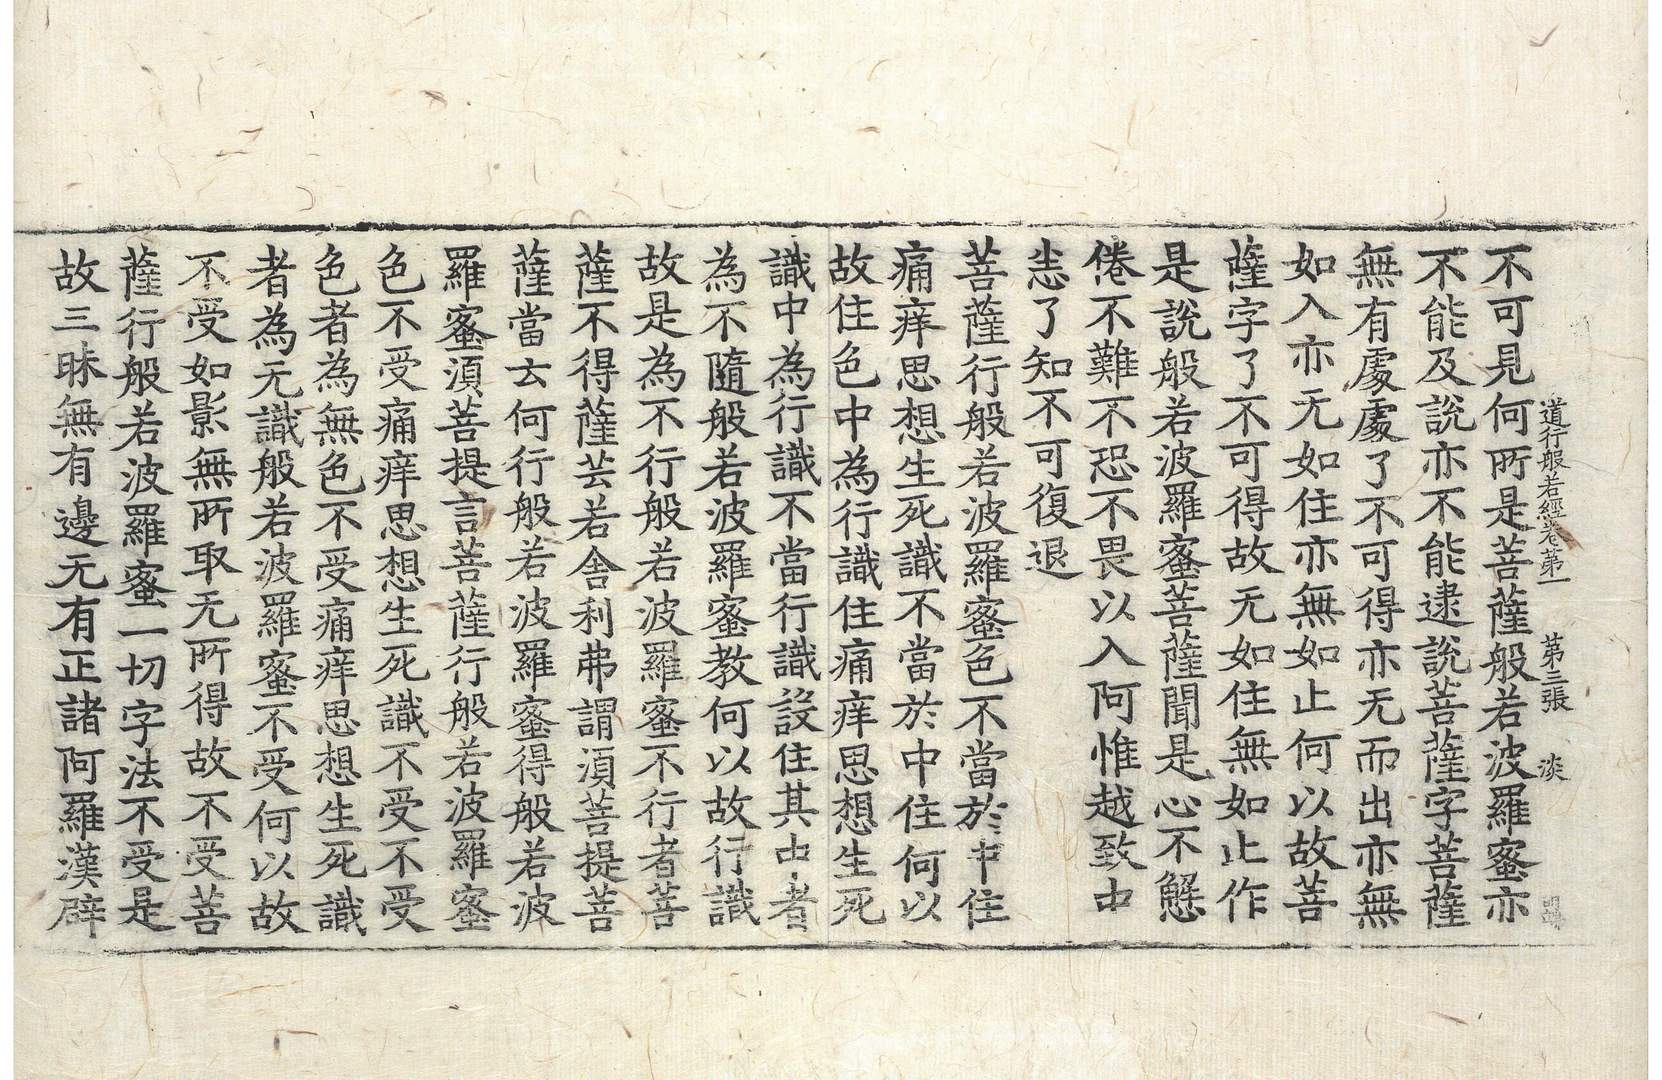 道行般若經卷第一　第三張　淡
不可見何所是菩薩般若波羅蜜亦
不能及說亦不能逮說菩薩字菩薩
無有處處了不可得亦无而出亦無
如入亦无如住亦無如止何以故菩
薩字了不可得故无如住無如止作
是說般若波羅蜜菩薩聞是心不懈
倦不難不恐不畏以入阿惟越致中
恚了知不可復退
菩薩行般若波羅蜜色不當於中住
痛痒思想生死識不當於中住何以
故住色中為行識住痛痒思想生死
識中為行識不當行識設住其中者
為不隨般若波羅蜜教何以故行識
故是為不行般若波羅蜜不行者菩
薩不得薩芸若舍利弗謂湏菩提菩
薩當云何行般若波羅蜜得般若波
羅蜜湏菩提言菩薩行般若波羅蜜
色不受痛痒思想生死識不受不受
色者為無色不受痛痒思想生死識
者為无識般若波羅蜜不受何以故
不受如影無所取无所得故不受菩
薩行般若波羅蜜一切字法不受是
故三昧無有邊无有正諸阿羅漢辟